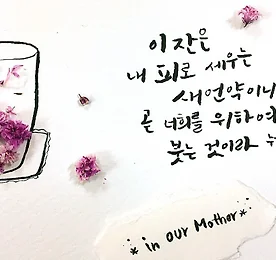 이 잔은
내 피로 세우는
새 언약이니
곧 너희를 위하여
붓는 것이라 누
* in our Mother *